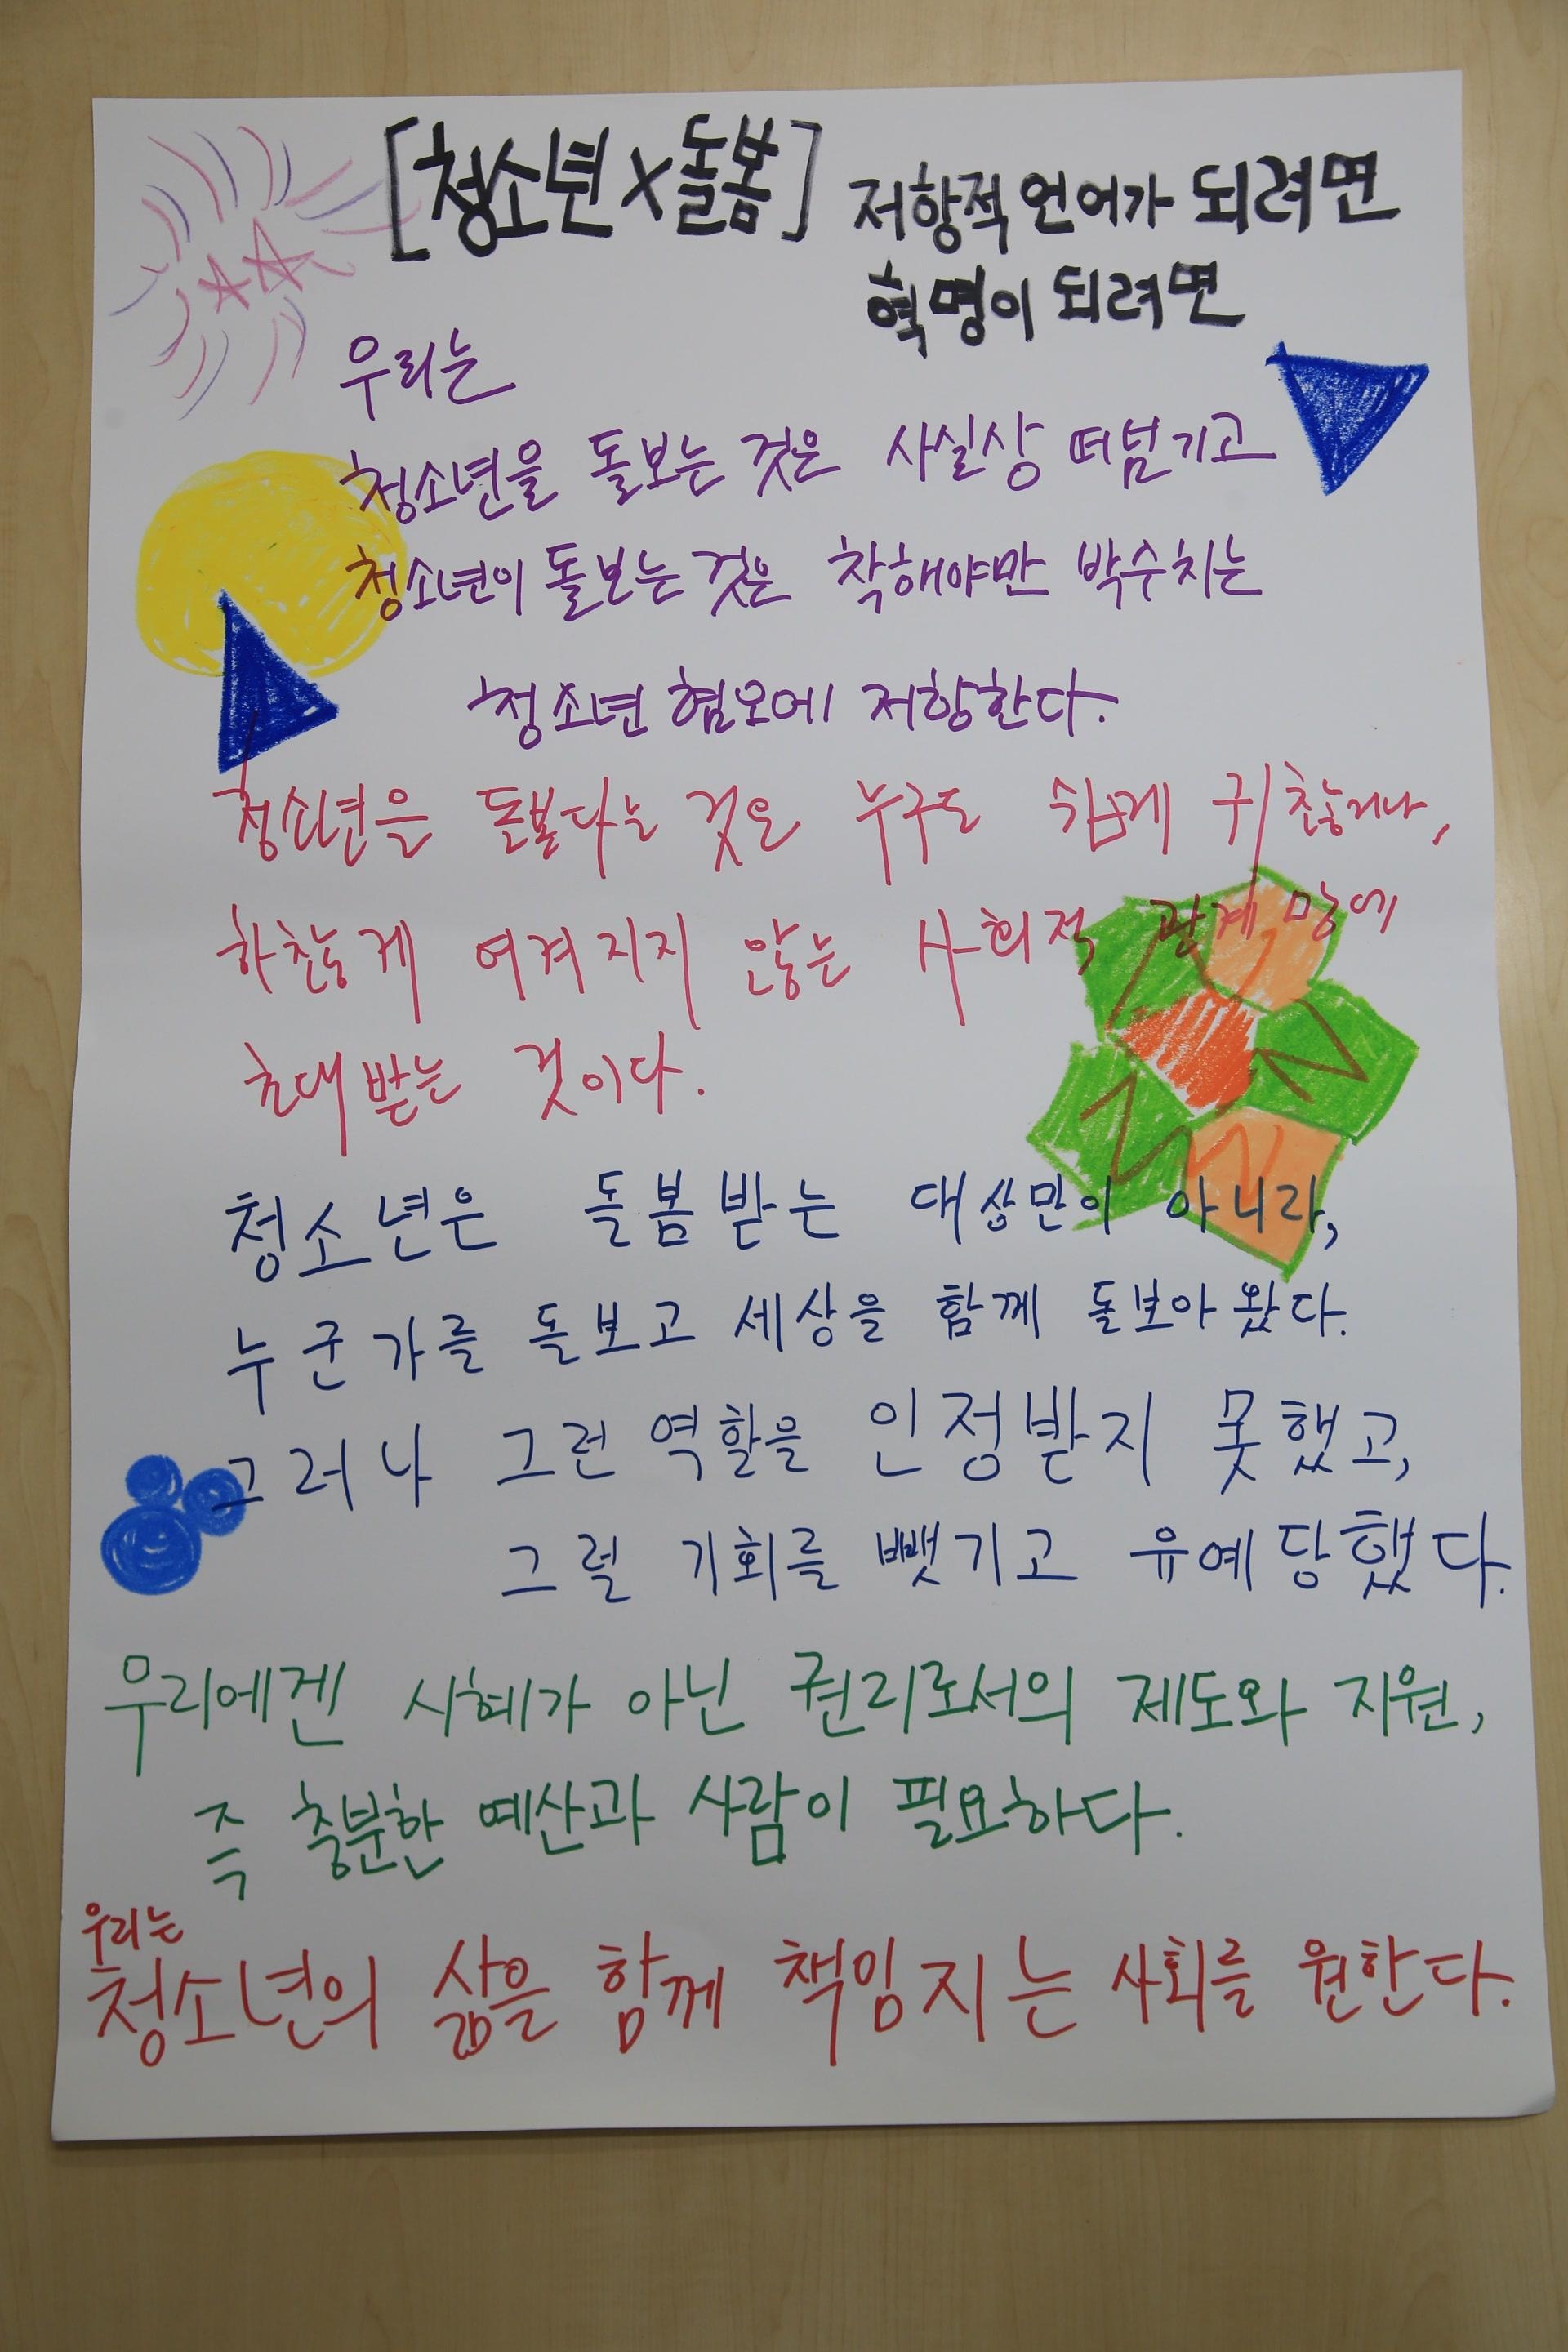 [청소년 X 돌봄] 저항적 언어가 되려면
혁명이 되려면
우리는
청소년을 돌보는 것은 사실상 떠넘기고
청소년이 돌보는 것은 착해야만 박수치는
청소년 혐오에 저항한다.
청소년은 돌본다는 것은 누구도 쉽게 귀찮거나,
하찮게 여겨지지 않는 사회적 관계망에
초대받는 것이다.
청소년은 돌봄받는 대상만이 아니라,
누군가를 돌보고 세상을 함께 돌보아 왔다.
그러나 그런 역할을 인정받지 못했고,
그럴 기회를 뺏기고 유예당했다.
우리에겐 시혜가 아닌 권리로서의 제도와 지원,
즉 충분한 예산과 사람이 필요하다.
우리는
청소년의 삶을 함께 책임지는 사회를 원한다.